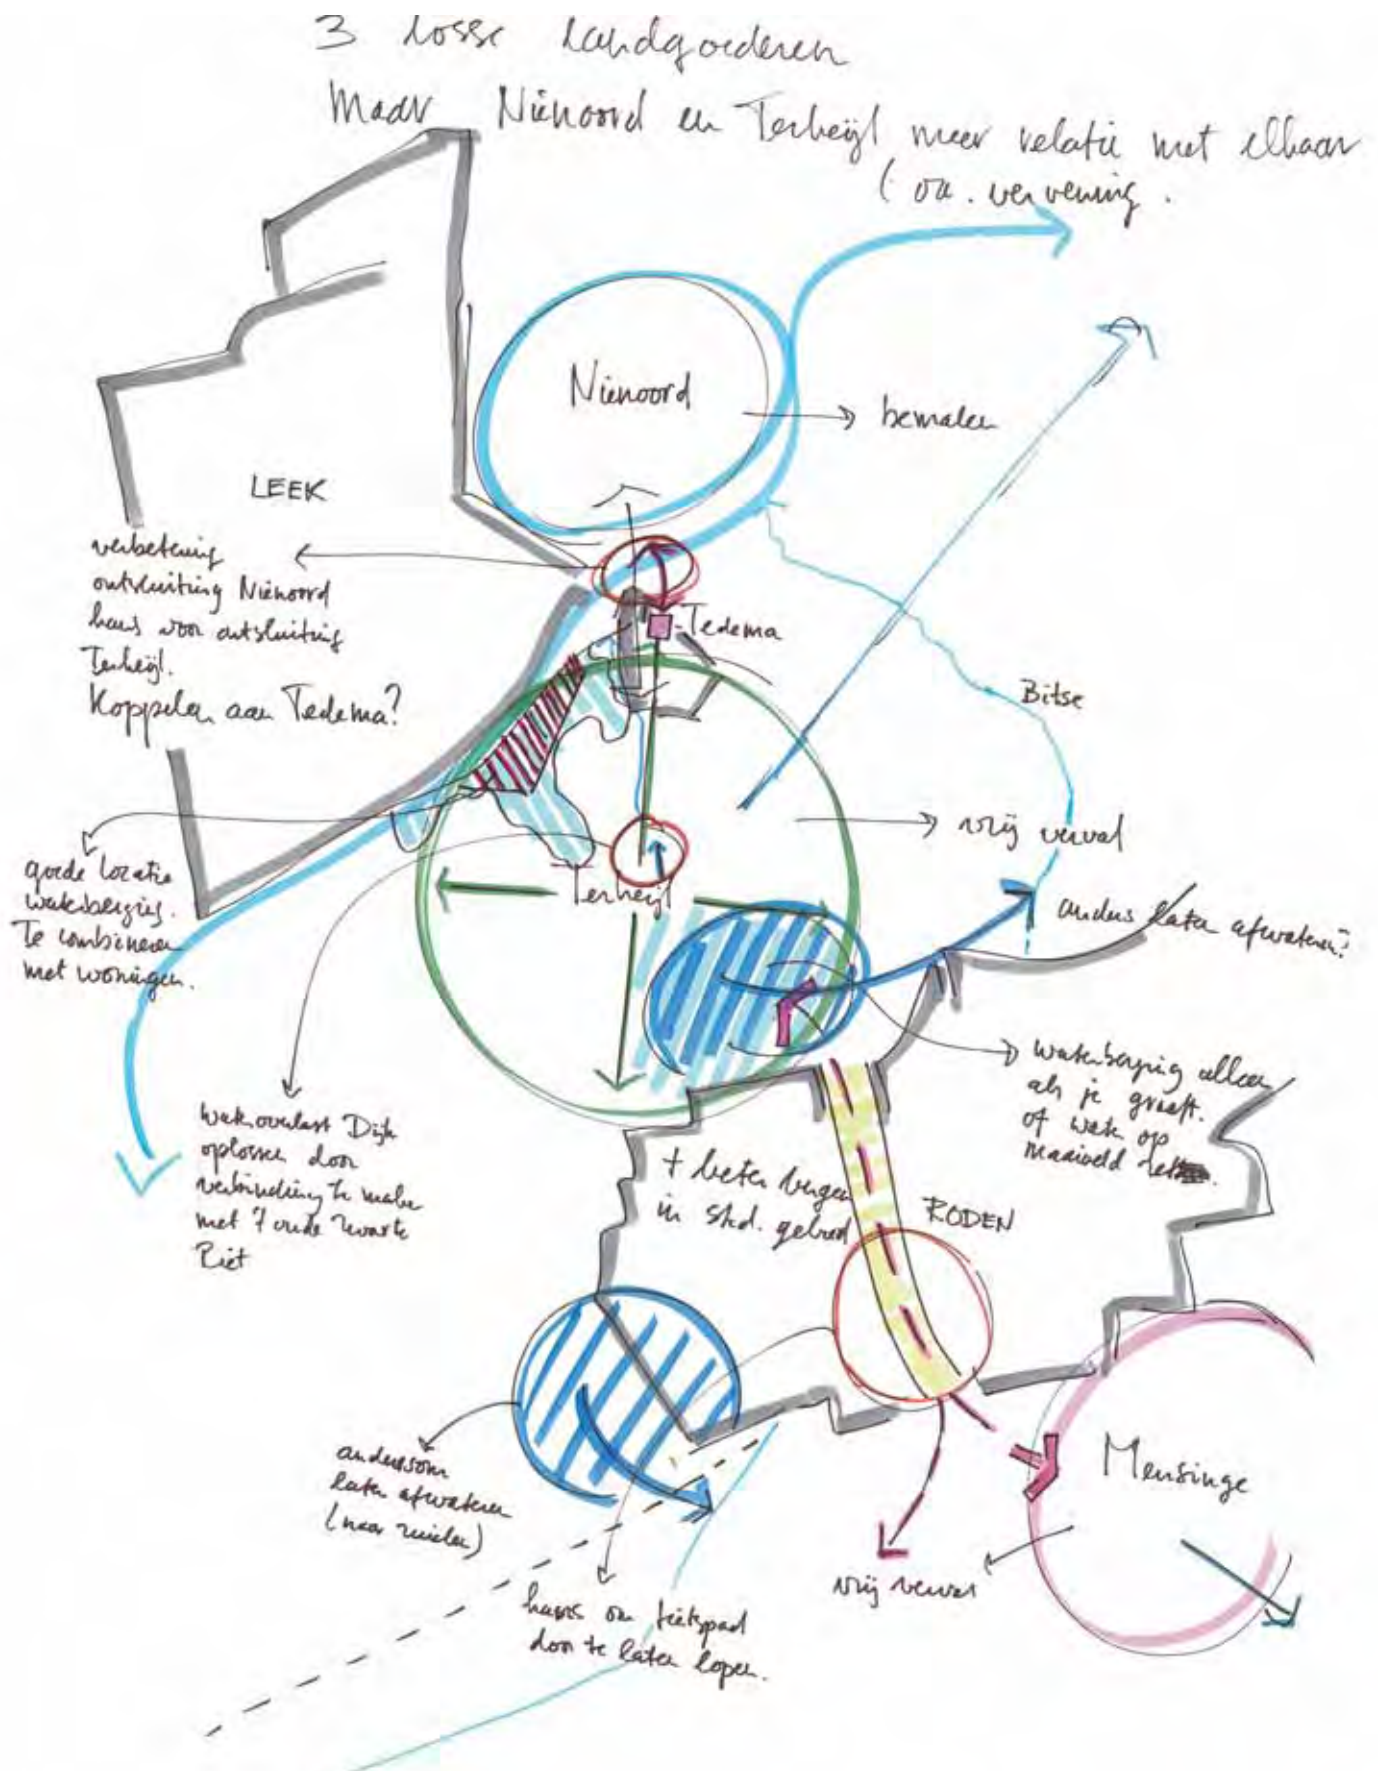 3 losse landgoederen
Maar Nienoord en Terheijl meer relatie met elkaar
(oa. vervening.
Nienoord
bemalen
LEEK
verbetering
ontsluiting Nienoord
kans voor ontsluiting
Terheijl.
Koppelen aan Tedema?
Tedema
Bitse
vrij verval
goede locatie
waterberging.
Te combineren
met woningen.
Terheijl
anders laten afwateren?
waterberging alleen
als je graaft.
of water op
maaiveld zet
wateroverlast Dijk
oplossen door
verbinding te maken
met 't oude zwarte
Riet
+ beter bergen
in sted. gebied
RODEN
Mensinge
andersom
laten afwateren
(naar zuiden)
vrij verval
kans om fietspad
door te laten lopen.